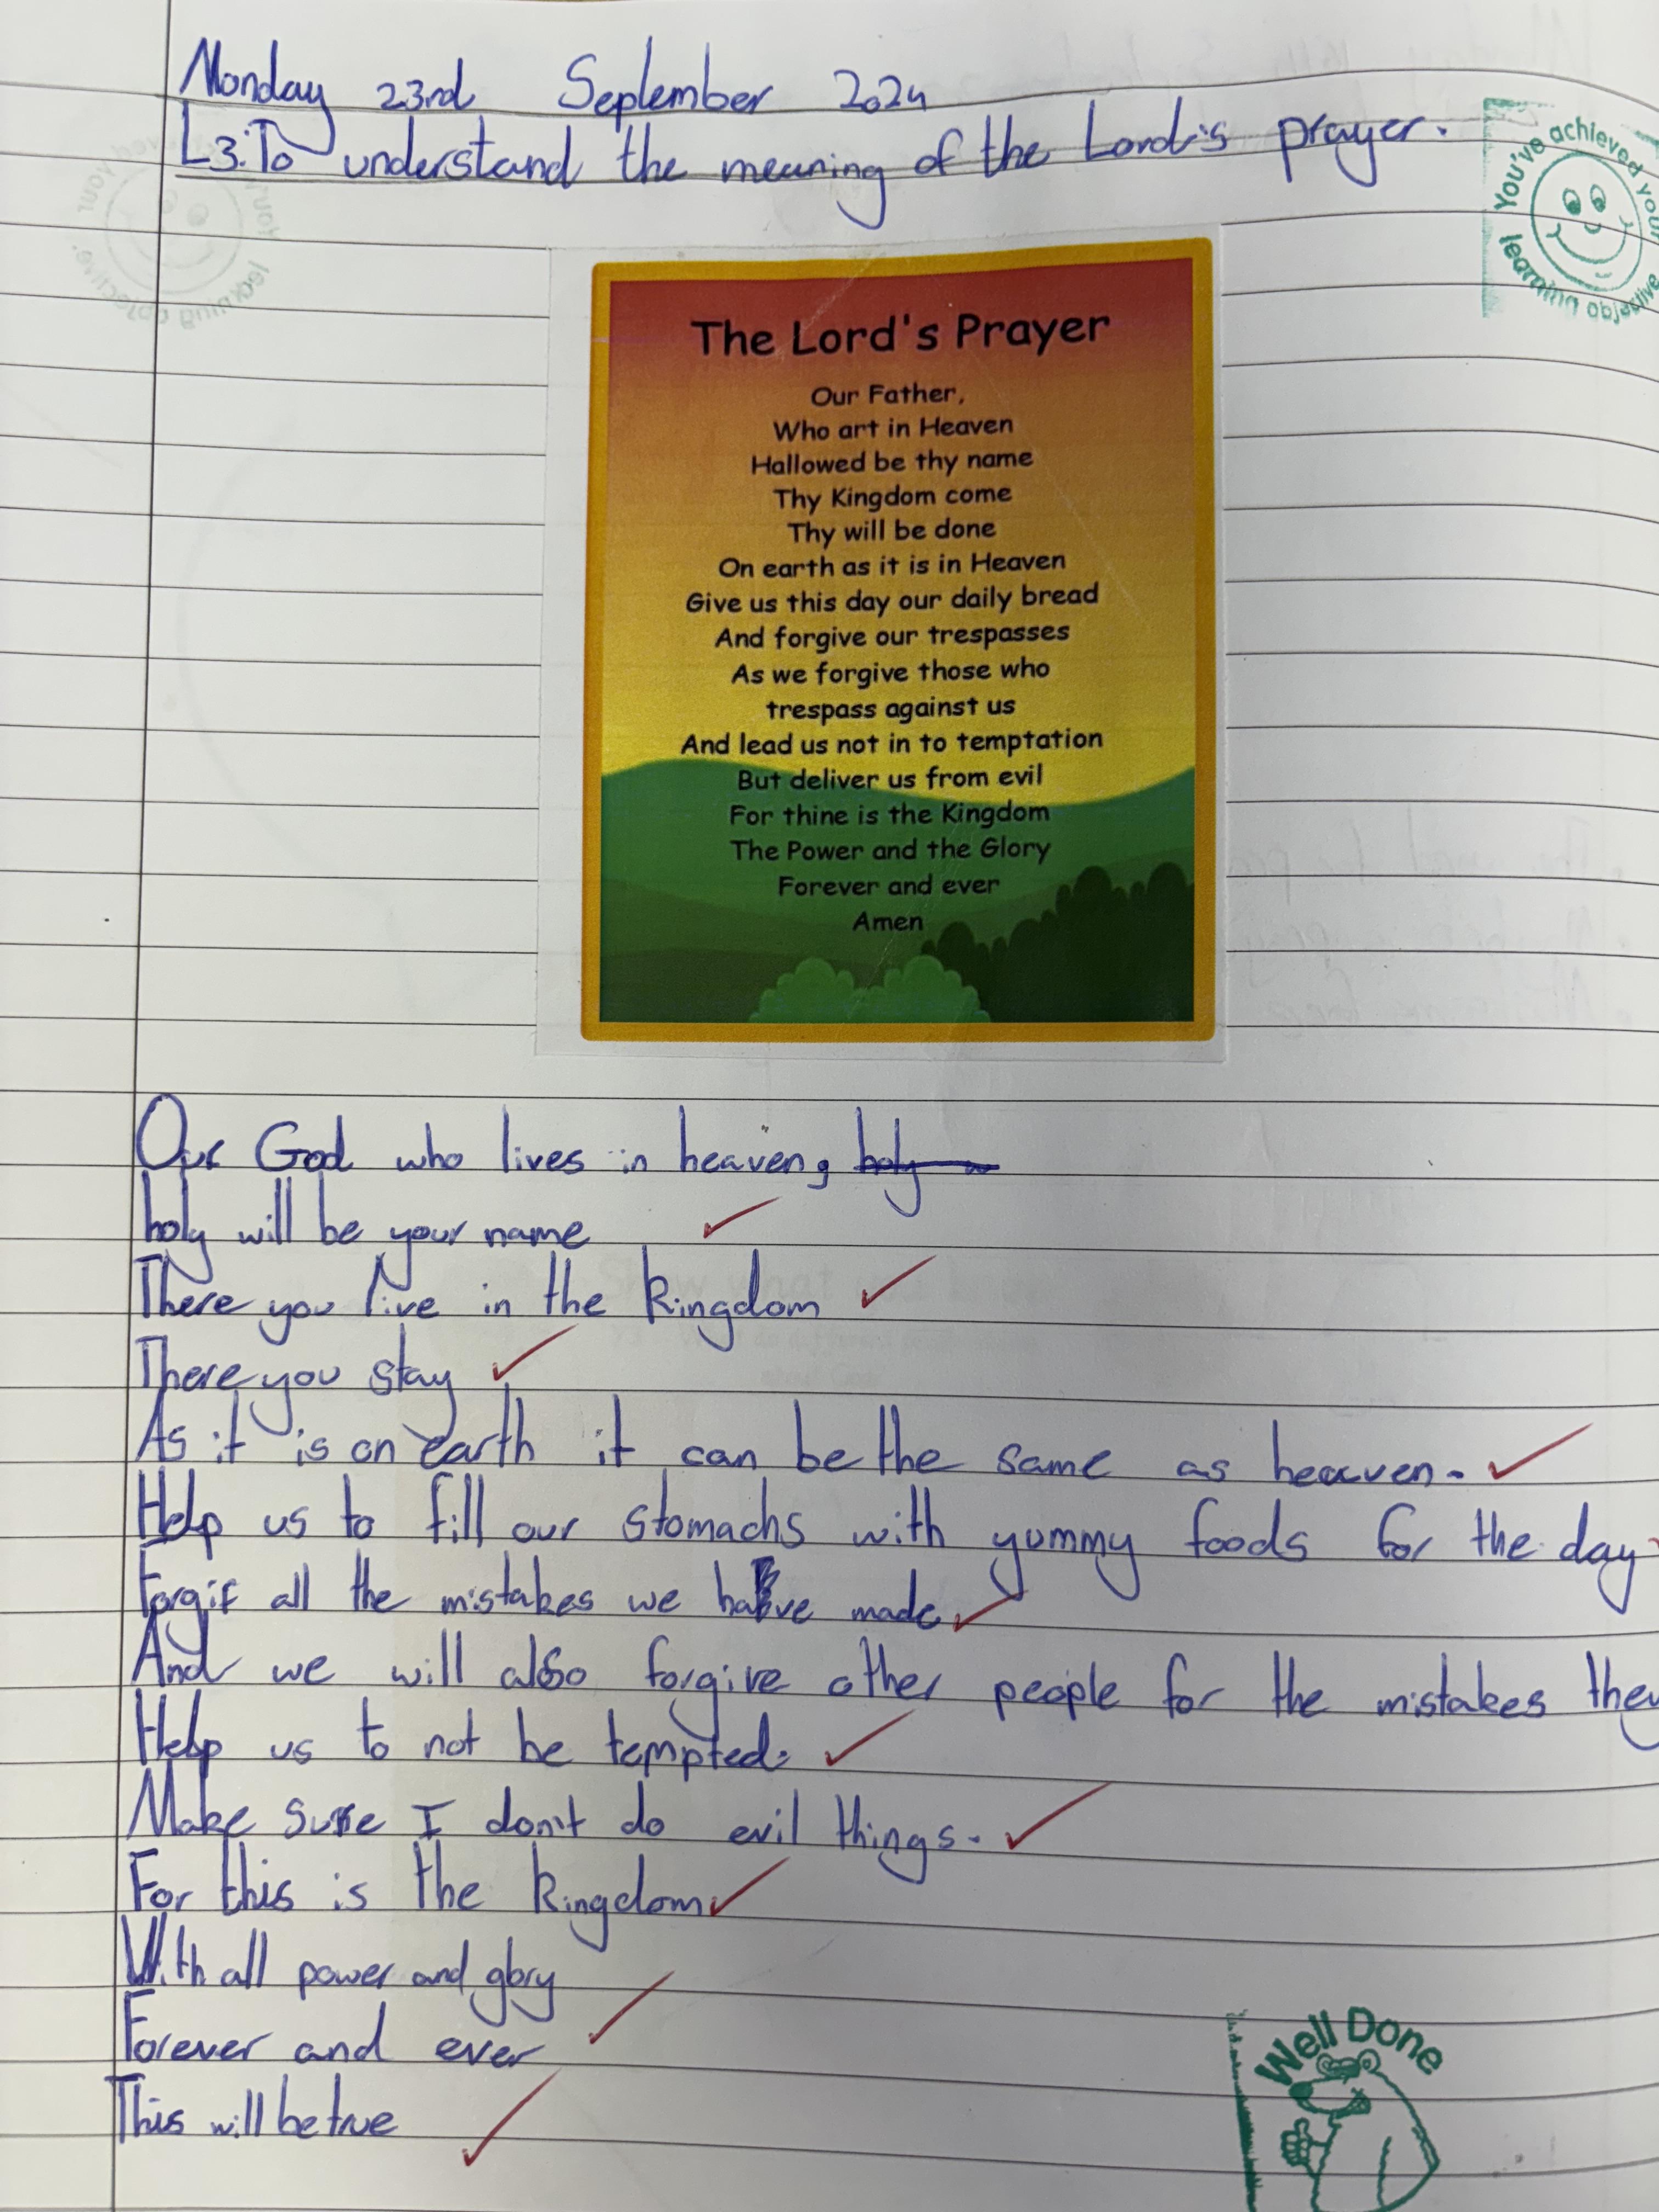 Monday 23rd September 2024
L3: To understand the meaning of the Lord's prayer.
You've achieved your learning objective
The Lord's Prayer
Our Father,
Who art in Heaven
Hallowed be thy name
Thy Kingdom come
Thy will be done
On earth as it is in Heaven
Give us this day our daily bread
And forgive our trespasses
As we forgive those who
trespass against us
And lead us not in to temptation
But deliver us from evil
For thine is the Kingdom
The Power and the Glory
Forever and ever
Amen
Our God who lives in heaven, holy
holy will be your name
There you live in the kingdom
There you stay
As it is on earth it can be the same as heaven.
Help us to fill our stomachs with yummy foods for the day
Forgif all the mistakes we have made
And we will also forgive other people for the mistakes they
Help us to not be tempted.
Make sure I don't do evil things.
For this is the kingdom
With all power and glory
Forever and ever
This will be true
Well Done